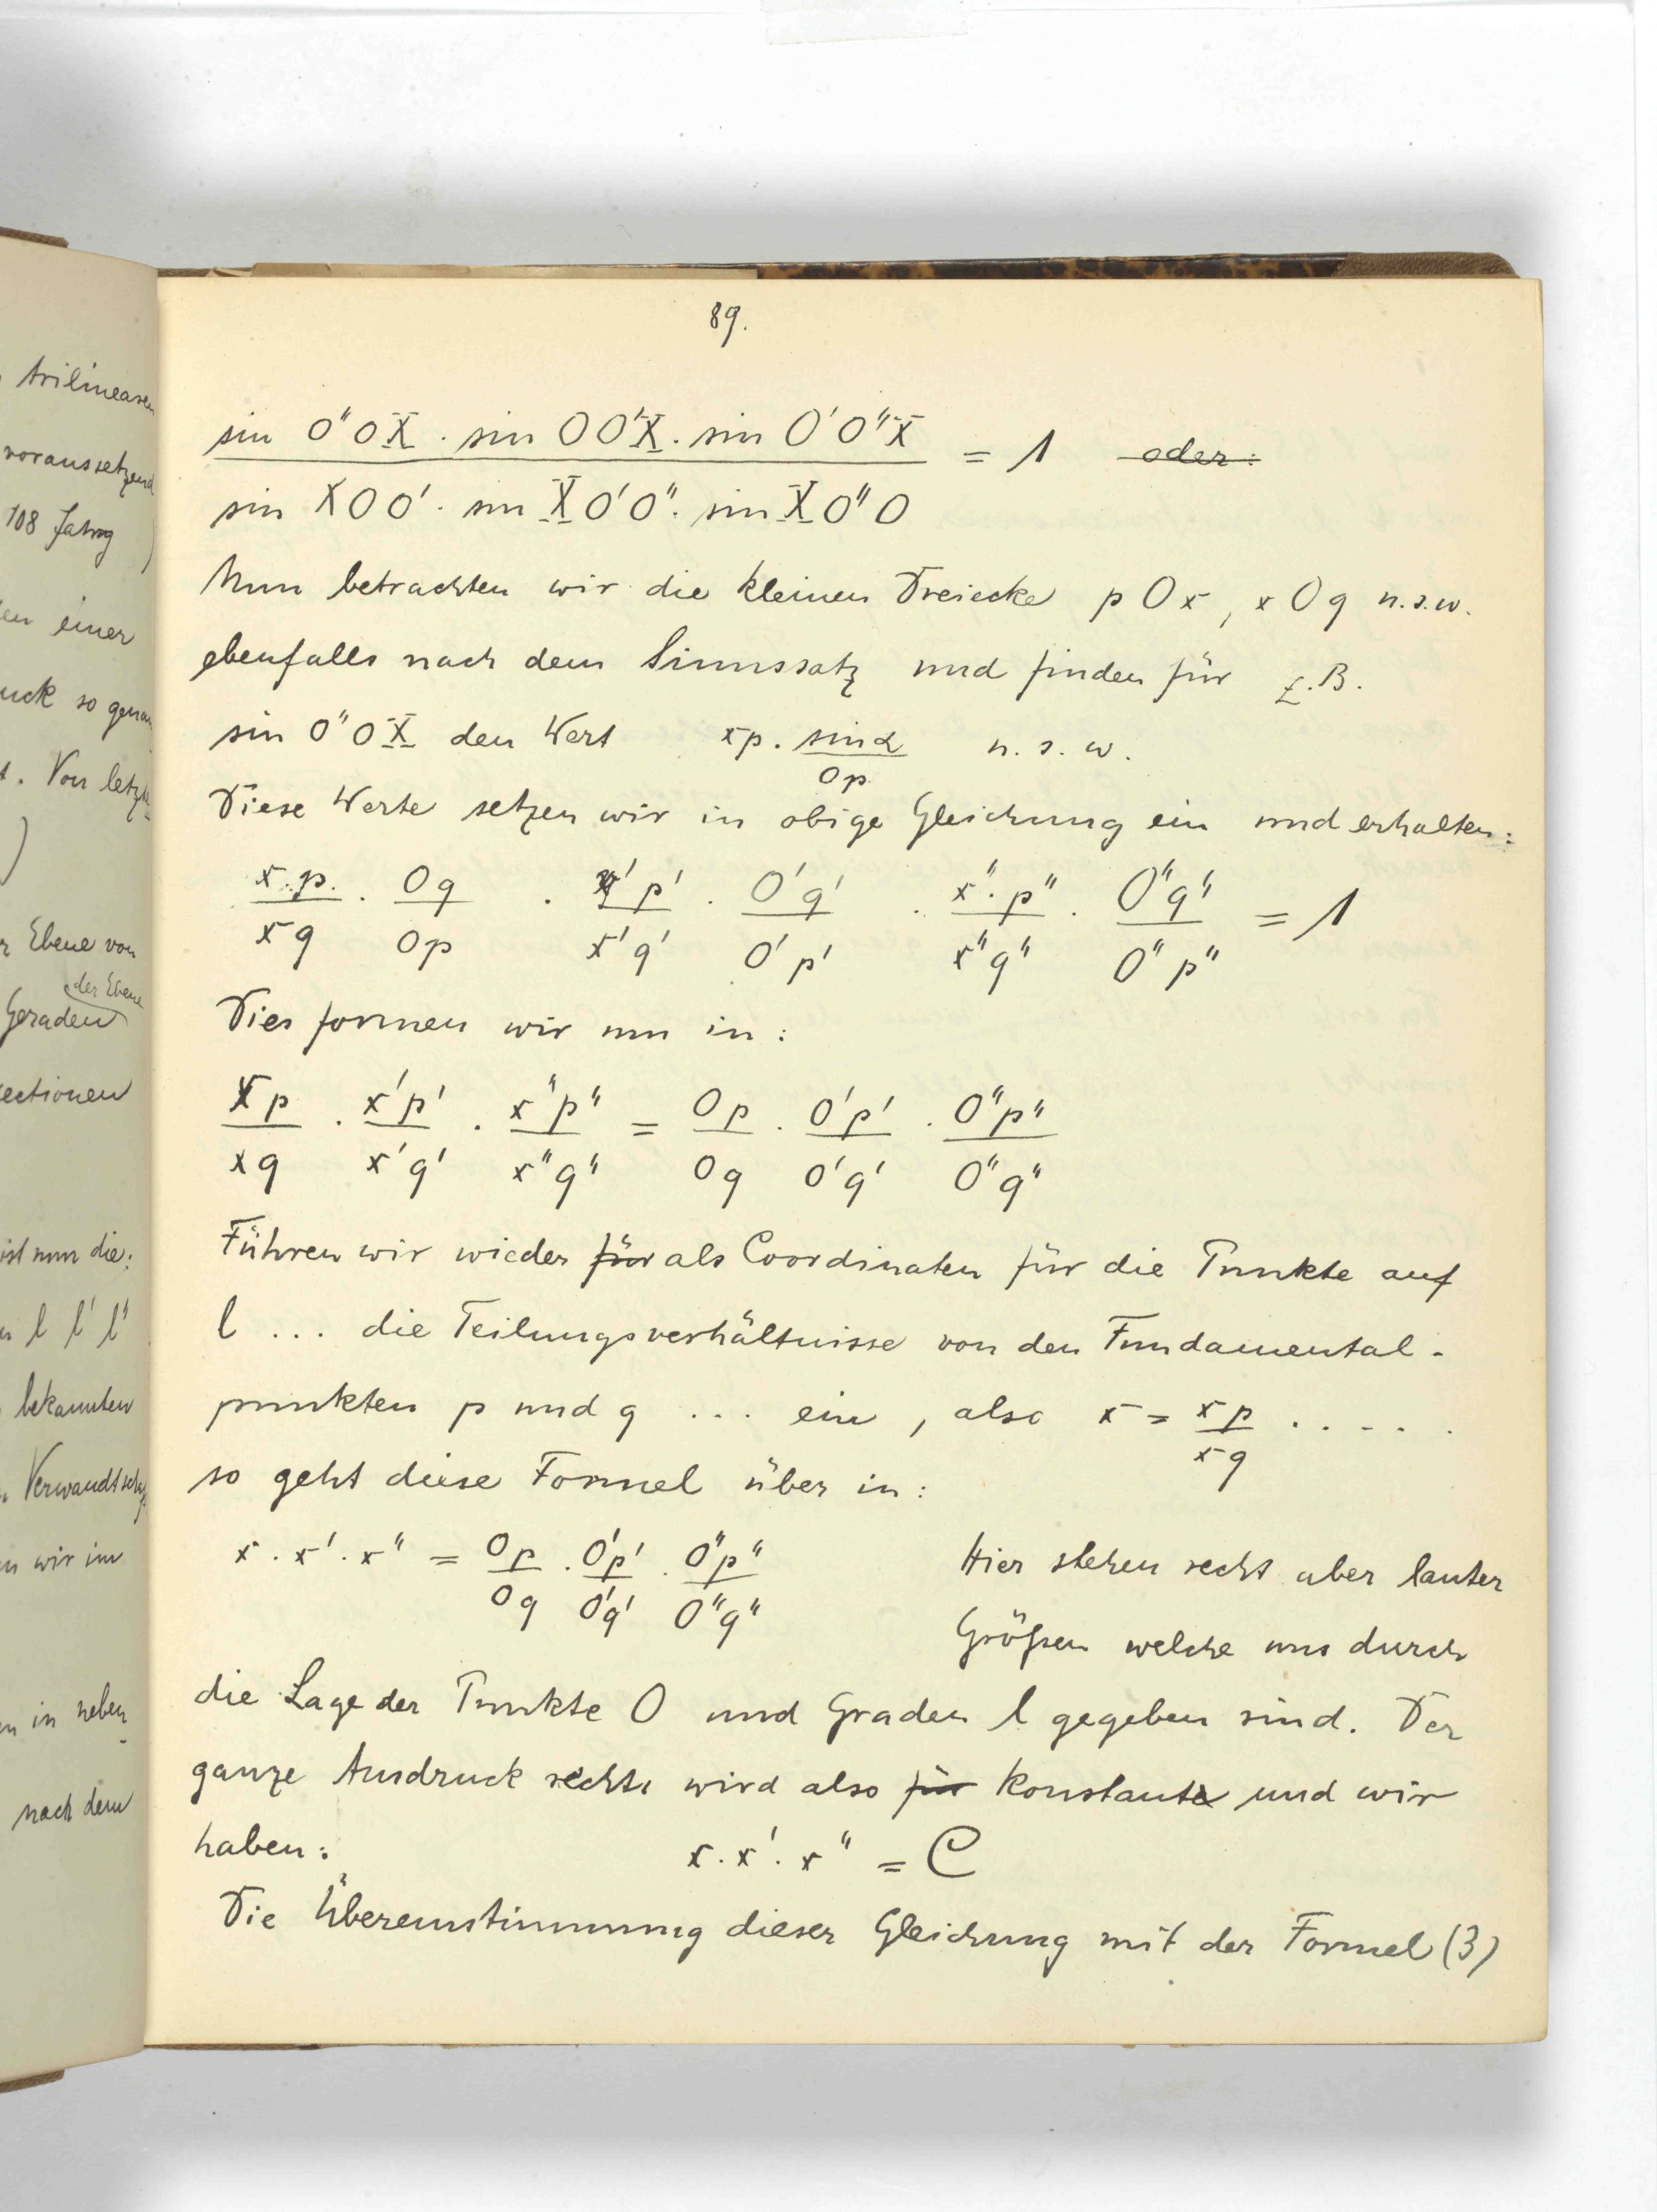 trilinearen
voraussetzend
108 Jahrg )
einer
uck so genau
. Von letzte
)
r Ebene von
der Ebene
Geraden
ectionen
ist nun die:
l l' l''
bekannten
Verwandtschaft
wir im
in neben
nach dem
89.
sin O''OX . sin OO'X . sin O'O''X = 1 oder:
sin XOO' . sin XO'O'' . sin XO''O
Nun betrachten wir die kleinen Dreiecke p O x, x O q u.s.w.
ebenfalls nach dem Sinussatz und finden für z.B.
sin O''OX den Wert xp . sin α u. s. w.
Op
Diese Werte setzen wir in obige Gleichung ein und erhalten:
x.p. . Oq . x'p' . O'q' . x''.p'' . O''q'' = 1
xq Op x'q' O'p' x''q'' O''p''
Dies formen wir um in:
xp . x'p' . x''p'' = Op . O'p' . O''p''
xq x'q' x''q'' Oq O'q' O''q''
Führen wir wieder für als Coordinaten für die Punkte auf
l ... die Teilungsverhältnisse von den Fundamental-
punkten p und q ... ein, also x = xp . . . . .
xq
so geht diese Formel über in:
x . x' . x'' = Op . O'p' . O''p''
Oq O'q' O''q''
Hier stehen recht aber lauter
Größen welche uns durch
die Lage der Punkte O und Graden l gegeben sind. Der
ganze Ausdruck rechts wird also für Konstante und wir
haben:
x . x' . x'' = C
Die Übereinstimmung dieser Gleichung mit der Formel (3)